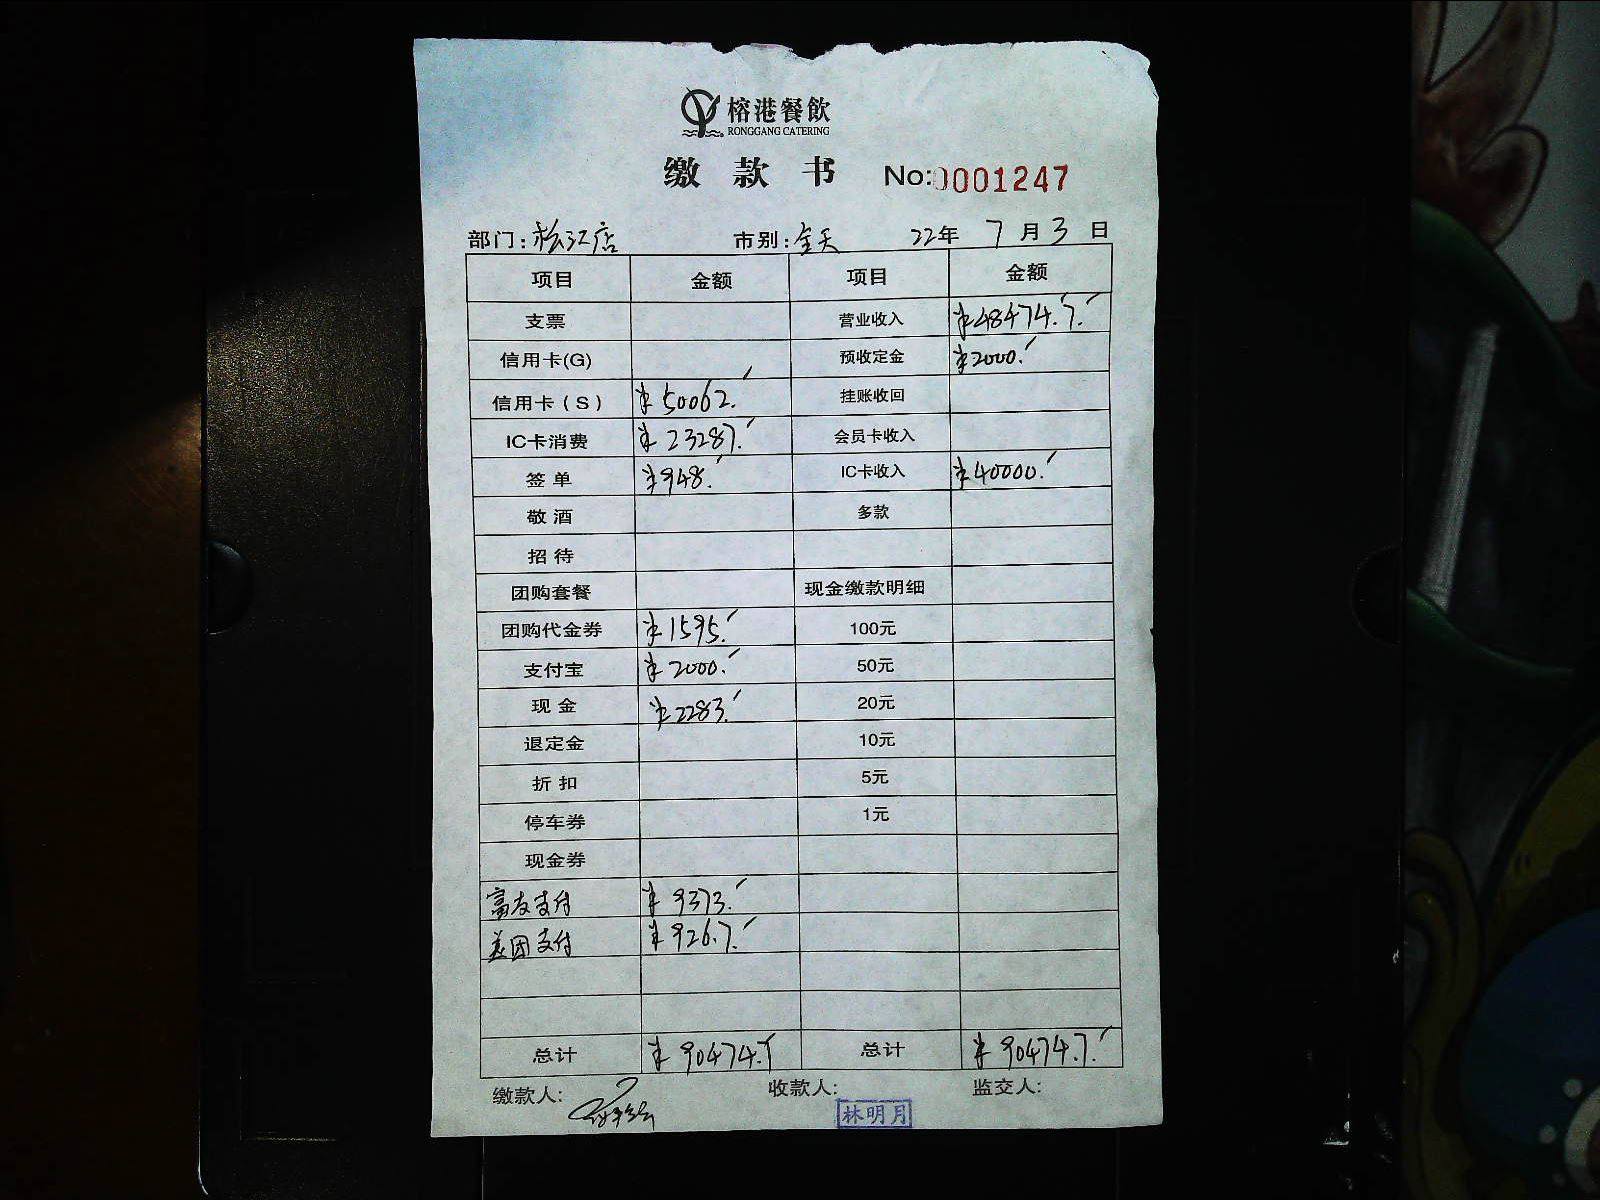 榕港餐飲
RONGGANG CATERING
缴款书 No:0001247
部门:松江店 市别:全天 22年7月3日
项目 金额 项目 金额
支票 营业收入 ¥48474.7.
信用卡(G) 预收定金 ¥2000.
信用卡(S) ¥50062. 挂账收回
IC卡消费 ¥23287. 会员卡收入
签单 ¥948. IC卡收入 ¥40000.
敬酒 多款
招待
团购套餐 现金缴款明细
团购代金券 ¥1595. 100元
支付宝 ¥2000. 50元
现金 ¥2283. 20元
退定金 10元
折扣 5元
停车券 1元
现金券
富友支付 ¥9373.
美团支付 ¥926.7.
总计 ¥90474.7 总计 ¥90474.7.
缴款人: 收款人: 监交人:
林明月